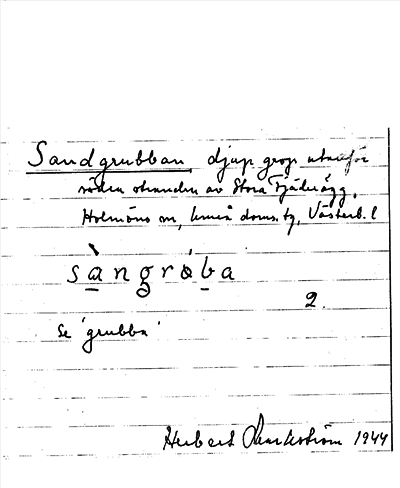 Sandgrubban, djup grop utanför
södra stranden av Stora Fjäderägg,
Holmöns sn, Umeå doms.tg, Västerb. l
sàngróba
2.
Se 'grubba'
Herbert 1944